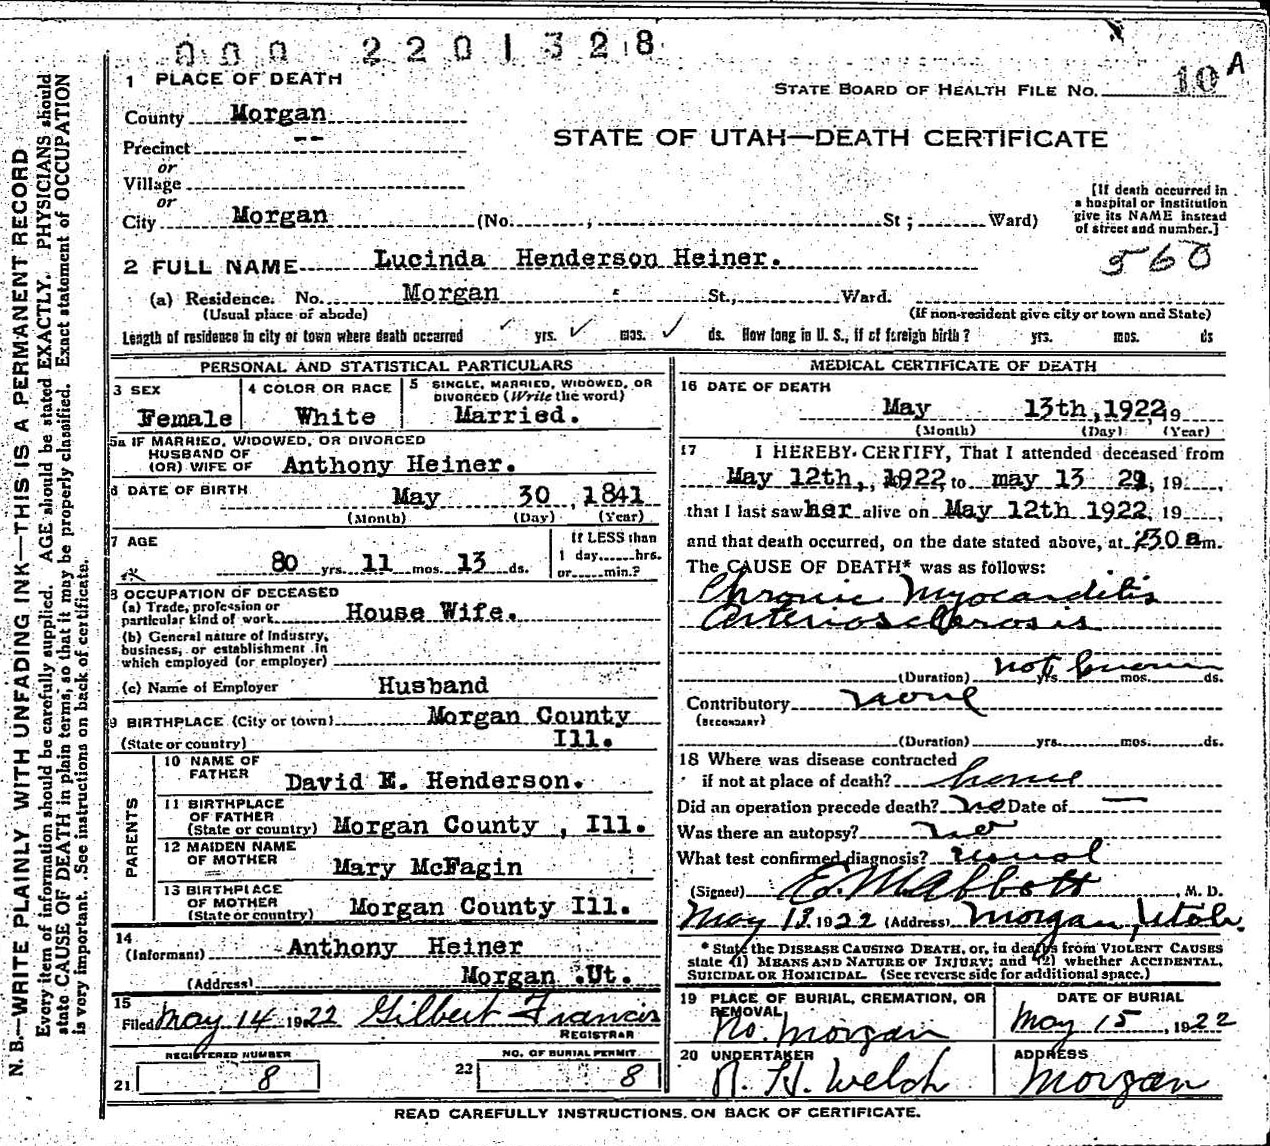 000 2201328
1 PLACE OF DEATH
STATE BOARD OF HEALTH FILE NO. 10 A
County Morgan
STATE OF UTAH—DEATH CERTIFICATE
Precinct --
or
Village
or
City Morgan (No. ; St ; Ward)
[If death occurred in
a hospital or institution
give its NAME instead
of street and number.]
560
2 FULL NAME Lucinda Henderson Heiner.
(a) Residence. No. Morgan St., Ward.
(Usual place of abode) (If non-resident give city or town and State)
Length of residence in city or town where death occurred ✓ yrs. ✓ mos. ✓ ds. How long in U. S., if of foreign birth ? yrs. mos. ds
PERSONAL AND STATISTICAL PARTICULARS
3 SEX
Female
4 COLOR OR RACE
White
5 SINGLE, MARRIED, WIDOWED, OR
DIVORCED (Write the word)
Married.
5a IF MARRIED, WIDOWED, OR DIVORCED
HUSBAND OF
(OR) WIFE OF Anthony Heiner.
6 DATE OF BIRTH May 30 , 1841
(Month) (Day) (Year)
7 AGE
80 yrs 11 mos 13 ds.
If LESS than
1 day......hrs.
or......min.?
8 OCCUPATION OF DECEASED
(a) Trade, profession or
particular kind of work House Wife.
(b) General nature of industry,
business, or establishment in
which employed (or employer)
(c) Name of Employer Husband
9 BIRTHPLACE (City or town) Morgan County
(State or country) Ill.
PARENTS
10 NAME OF
FATHER David E. Henderson.
11 BIRTHPLACE
OF FATHER
(State or country) Morgan County , Ill.
12 MAIDEN NAME
OF MOTHER Mary McFagin
13 BIRTHPLACE
OF MOTHER
(State or country) Morgan County Ill.
14
(Informant) Anthony Heiner
(Address) Morgan .Ut.
15
Filed May 14 1922 Gilbert Francis
REGISTRAR
REGISTERED NUMBER
21 8
NO. OF BURIAL PERMIT
22 8
MEDICAL CERTIFICATE OF DEATH
16 DATE OF DEATH
May 13th, 1922, 19
(Month) (Day) (Year)
17 I HEREBY CERTIFY, That I attended deceased from
May 12th,, 1922 to may 13 , 19
that I last saw her alive on May 12th 1922, 19 ,
and that death occurred, on the date stated above, at 30 a m.
The CAUSE OF DEATH* was as follows:
Chronic Myocarditis
Arteriosclerosis
(Duration) not known yrs. mos. ds.
Contributory none
(SECONDARY)
(Duration) yrs. mos. ds.
18 Where was disease contracted
if not at place of death? home
Did an operation precede death? no Date of —
Was there an autopsy? no
What test confirmed diagnosis? usual
(Signed) E. M. Abbott M. D.
May 13 1922 (Address) Morgan, Utah.
* State the DISEASE CAUSING DEATH, or, in deaths from VIOLENT CAUSES
state (1) MEANS AND NATURE OF INJURY; and (2) whether ACCIDENTAL,
SUICIDAL OR HOMICIDAL. (See reverse side for additional space.)
19 PLACE OF BURIAL, CREMATION, OR
REMOVAL
No. Morgan
DATE OF BURIAL
May 15 , 1922
20 UNDERTAKER
H. Welch
ADDRESS
Morgan
READ CAREFULLY INSTRUCTIONS ON BACK OF CERTIFICATE.
N. B.—WRITE PLAINLY WITH UNFADING INK—THIS IS A PERMANENT RECORD
Every item of information should be carefully supplied. AGE should be stated EXACTLY. PHYSICIANS should
state CAUSE OF DEATH in plain terms, so that it may be properly classified. Exact statement of OCCUPATION
is very important. See instructions on back of certificate.